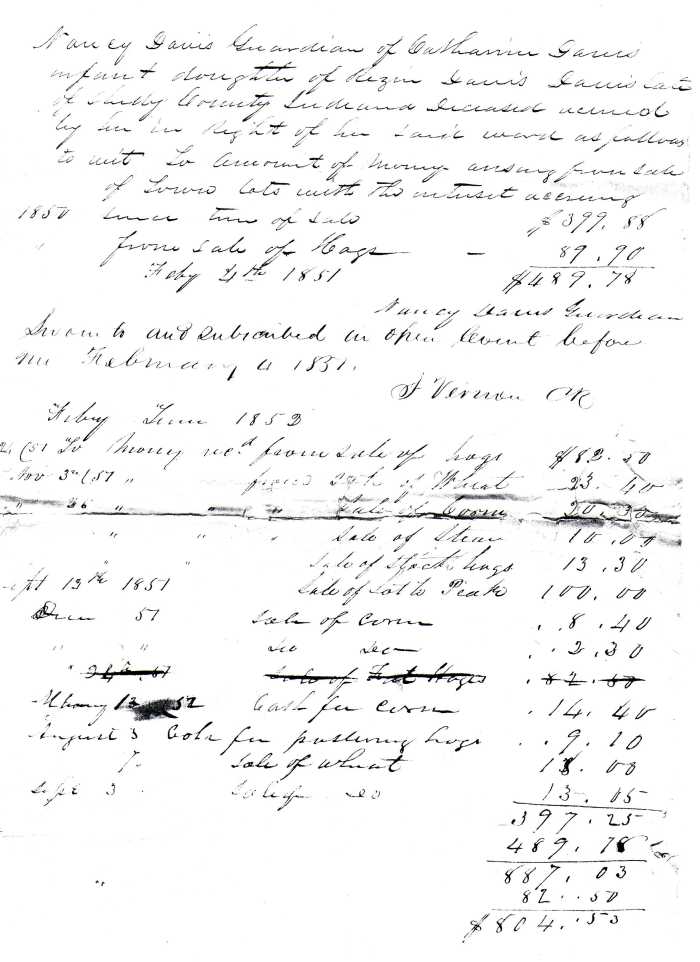 Nancy Davis Guardian of Catharine Davis
infant daughter of Rezin Davis Davis late
of Shelby County Indiana Deceased
by her in Right of her said ward as follows
to wit To Amount of Money arising from sale
of Town lots with the interest accruing
1850 since time of sale $399.88
" from sale of Hogs — 89.90
Feby 4th 1851 $489.78
Nancy Davis Guardian
Sworn to and subscribed in open Court before
me February 4 1851.
J Vernon Clk
Feby Term 1852
(51 To Money recd from sale of hogs $82.50
Nov 3rd (51 " from sale of Wheat 23.40
" 26 " " Sale of Corn 20.30
" " " Sale of Steer 10.00
Sale of Stock hogs 13.30
Sept 13th 1851 " Sale of Lot to Peake 100.00
51 sale of corn 8.40
" " Do Do 2.30
" 24th 51 Sale of Fat Hogs 82.50
52 Cash for corn 14.40
August 3 for pasturing hogs 9.10
7 Sale of wheat 00
Sept 3 Sale of Do 13.05
397.25
489.78
887.03
82.50
$804.53